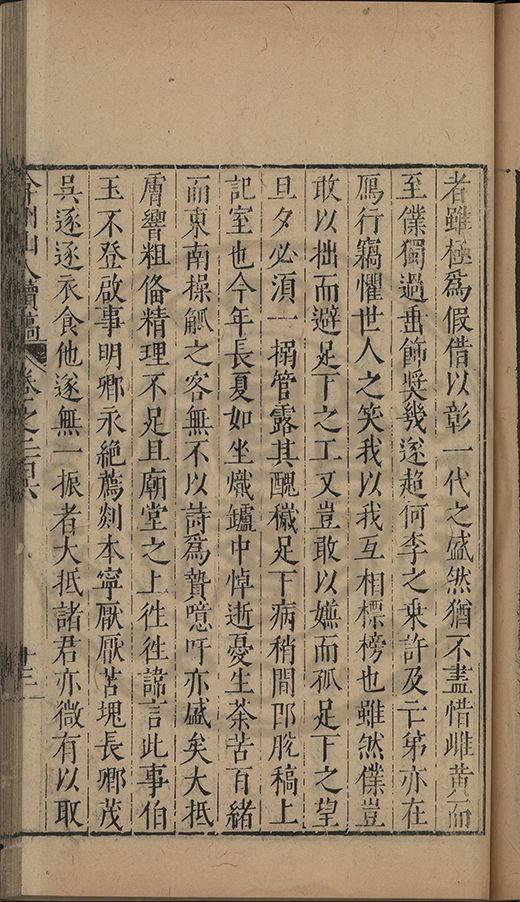 者雖極爲假借以彰一代之盛然猶不盡惜雌黃而
至僕獨過垂飾奬幾遂超何李之乗許及亡苐亦在
鴈行竊懼世人之笑我以我互相標榜也雖然僕豈
敢以拙而避足下之工又豈敢以嫵而孤足下之望
旦夕必須一搦管露其醜穢足下病稍間卽脫稿上
記室也今年長夏如坐熾鑪中悼逝憂生荼苦百緒
而東南操觚之客無不以詩爲贄噫吁亦盛矣大抵
膚響粗偹精理不足且廟堂之上徃徃諱言此事伯
玉不登啟事明卿永絶薦剡本寧厭厭苫塊長卿茂
吳逐逐衣食他遂無一振者大抵諸君亦微有以取
弇州山人續稿 卷之二百六 十三